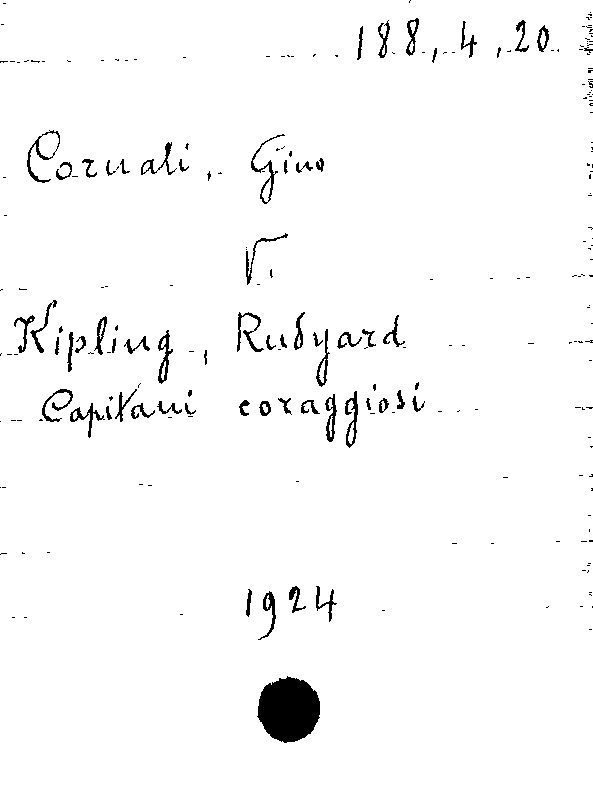 188, 4, 20
Cornali, Gino
V.
Kipling, Rudyard
Capitani coraggiosi
1924